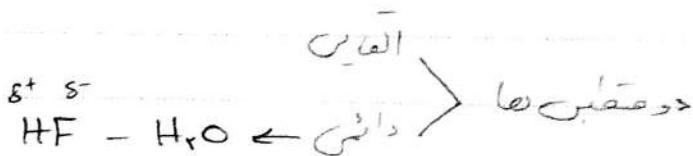 دو قطبی ها
القایی
دائمی ← H₂O – HF
δ+ δ-